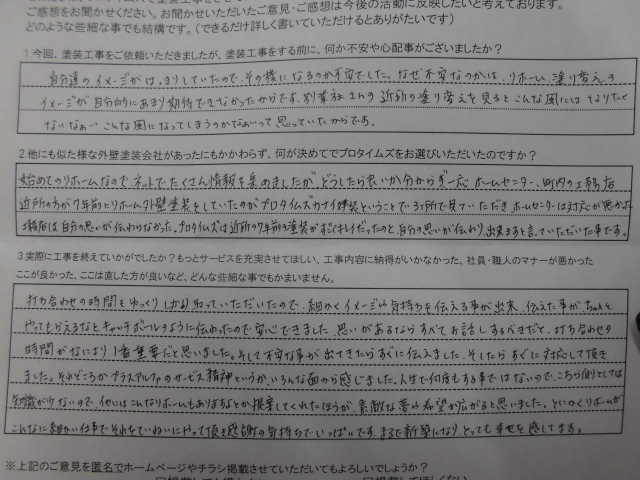 ご感想をお聞かせください。お聞かせいただいたご意見・ご感想は今後の活動に反映したいと考えております。
どのような些細な事でも結構です。（できるだけ詳しく書いていただけるとありがたいです）
1.今回、塗装工事をご依頼いただきましたが、塗装工事をする前に、何か不安や心配事がございましたか？
自分達のイメージがはっきりしていたので、その様になるのか不安でした。なぜ不安なのかは、リホーム、塗り考えの
イメージが自分的にあまり期待できなかったからです。別業社さんの近所の塗り考えを見ると こんな風にはなりたく
ないなぁ こんな風になってしまうのかなぁって思っていたからです。
2.他にも似た様な外壁塗装会社があったにもかかわらず、何が決めてでプロタイムズをお選びいただいたのですか？
始めてのリホームなので ネットでたくさん情報を集めましたが、どうしたら良いか分からず一応 ホームセンター、町内の工務店
近所の方が7年前にリホームタ外壁塗装をしていたのがプロタイムズ ということで3ヶ所で見ていただき、ホームセンターは対応が悪かった
工務店は自分の思いが伝わらなかった。プロタイムズは近所の7年前の塗装がすごくキレイだったのと、自分の思いが伝わり、出来ますと言っていただいた事です。
3.実際に工事を終えていかがでしたか？もっとサービスを充実させてほしい、工事内容に納得がいかなかった、社員・職人のマナーが悪かった
ここが良かった、ここは直した方が良いなど、どんな些細な事でもかまいません。
打ち合わせの時間をゆっくりしっかり取っていただいたので、細かくイメージや気持ちを伝える事が出来、伝えた事が、ちゃんと
やってもらえるなとキャッチボールのように伝わったので安心できました。思いがあるならすべてお話しするべきだと、打ち合わせの
時間がなにより1番重要だと思いました。そして不安な事が出てきたらすぐに伝えました。そしたらすぐに対応して頂き
ました。それどころかプラスアルファのサービス精神というか、いろんな面から感じました。人生で何度もする事ではないので、こちら側としては
知識が少ないので、他にはこんなリホームもありますよとか提案してくれたほうが、素敵な夢や希望が広がると思いました。とにかくリホームが
こんなに細かい仕事でそれをていねいにやって頂き感謝の気持ちでいっぱいです。まるで新築になり、とっても幸せを感じてます。
※上記のご意見を匿名でホームページやチラシ掲載させていただいてもよろしいでしょうか？